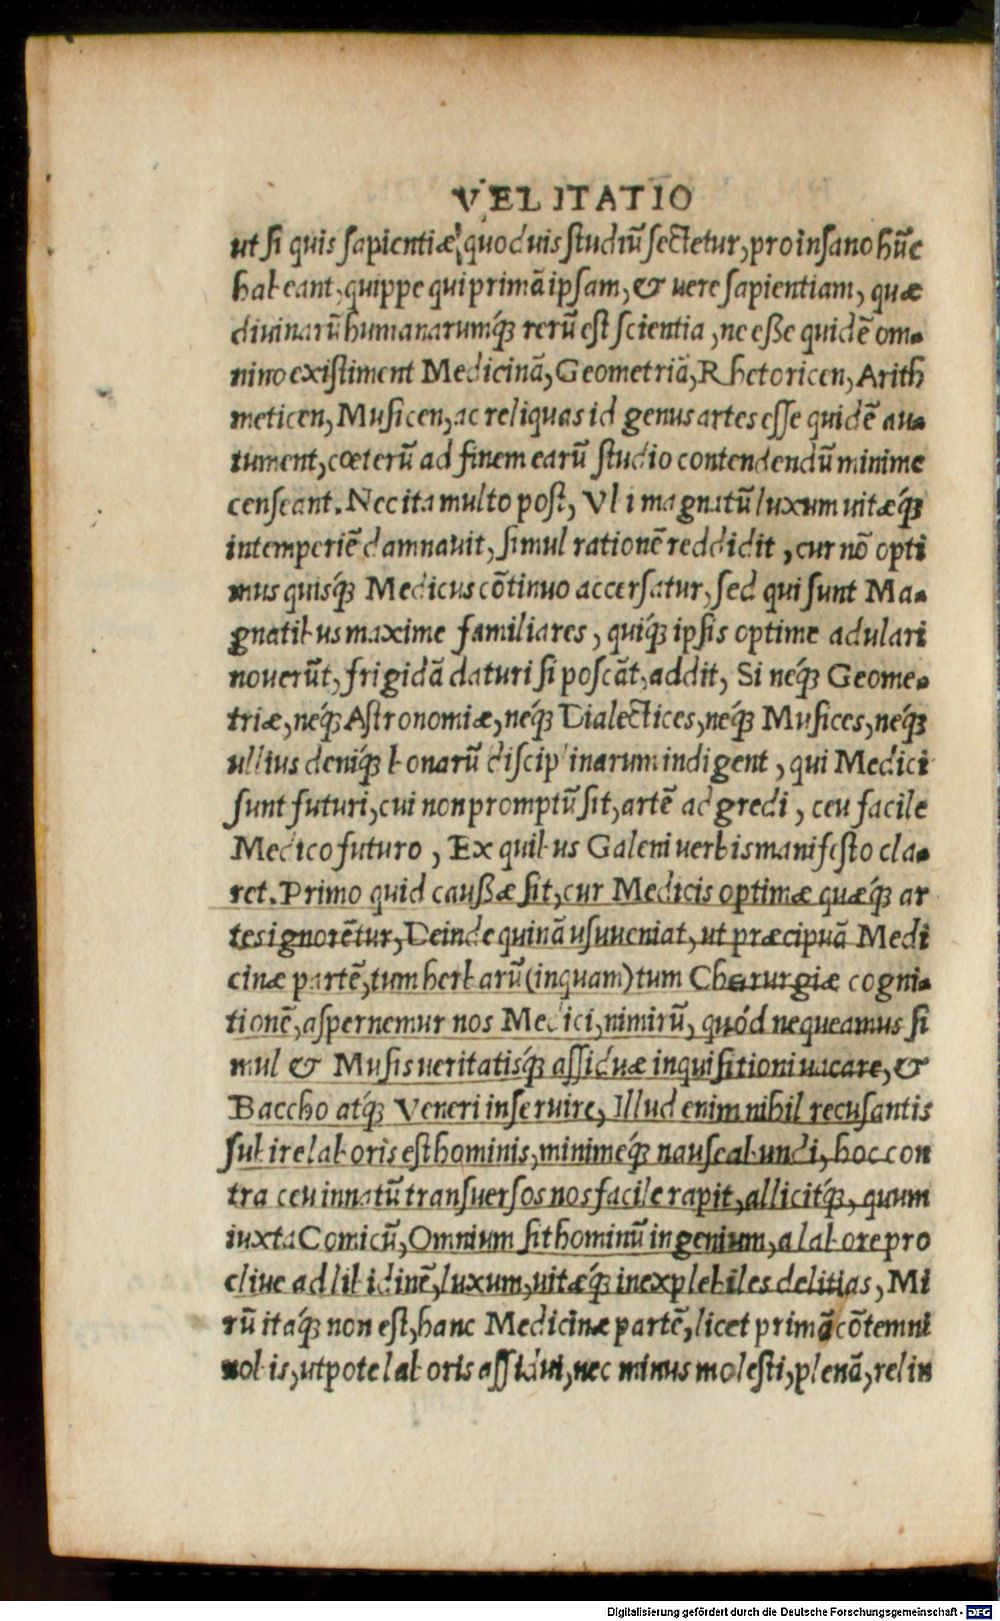 VELITATIO
ut si quis sapientiæ quoduis studiũ sectetur, pro insano hũc
habeant, quippe qui primã ipsam, & uere sapientiam, quæ
diuinarũ humanarumq́; rerũ est scientia, ne eße quidẽ om-
nino existiment Medicinã, Geometriã, Rhetoricen, Arith
meticen, Musicen, ac reliquas id genus artes esse quidẽ au-
tument, cœterũ ad finem earũ studio contendendũ minime
censeant. Nec ita multo post, Vbi magnatũ luxum uitæq́;
intemperiẽ damnauit, simul rationẽ reddidit, cur nõ opti
mus quisq́; Medicus cõtinuo accersatur, sed qui sunt Ma-
gnatibus maxime familiares, quiq́; ipsis optime adulari
nouerũt, frigidã daturi si poscãt, addit, Si neq́; Geome-
triæ, neq́; Astronomiæ, neq́; Dialectices, neq́; Musices, neq́;
ullius deniq́; bonarũ disciplinarum indigent, qui Medici
sunt futuri, cui non promptũ sit, artẽ adgredi, ceu facile
Medico futuro, Ex quibus Galeni uerbis manifesto cla-
ret. Primo quid caußæ sit, cur Medicis optimæ quæq́; ar
tes ignorẽtur, Deinde quinã usuueniat, ut præcipuã Medi
cinæ partẽ, tum herbarũ (inquam) tum Chęrurgiæ cogni-
tionẽ, aspernemur nos Medici, nimirũ, quód nequeamus si
mul & Musis ueritatisq́; assiduæ inquisitioni uacare, &
Baccho atq́; Veneri inseruire, Illud enim nihil recusantis
subire laboris est hominis, minimeq́; nauseabundi, hoc con
tra ceu innatũ transuersos nos facile rapit, allicitq́;, quum
iuxta Comicũ, Omnium sit hominũ ingenium, a labore pro
cliue ad libidinẽ, luxum, uitæq́; inexplebiles delitias, Mi
rũ itaq́; non est, hanc Medicinæ partẽ, licet primã cõtemni
nobis, utpote laboris assidui, nec minus molesti, plenã, relin
Digitalisierung gefördert durch die Deutsche Forschungsgemeinschaft - DFG